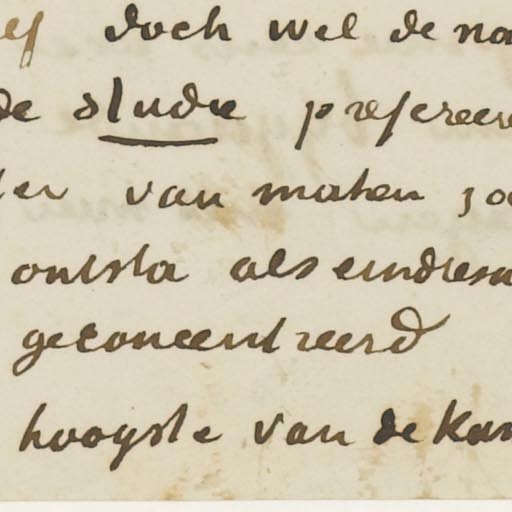 doch wel de na
de studie prefereer
van maken zo
ontsta als eindresu
geconcentreerd
hoogste van de Kun